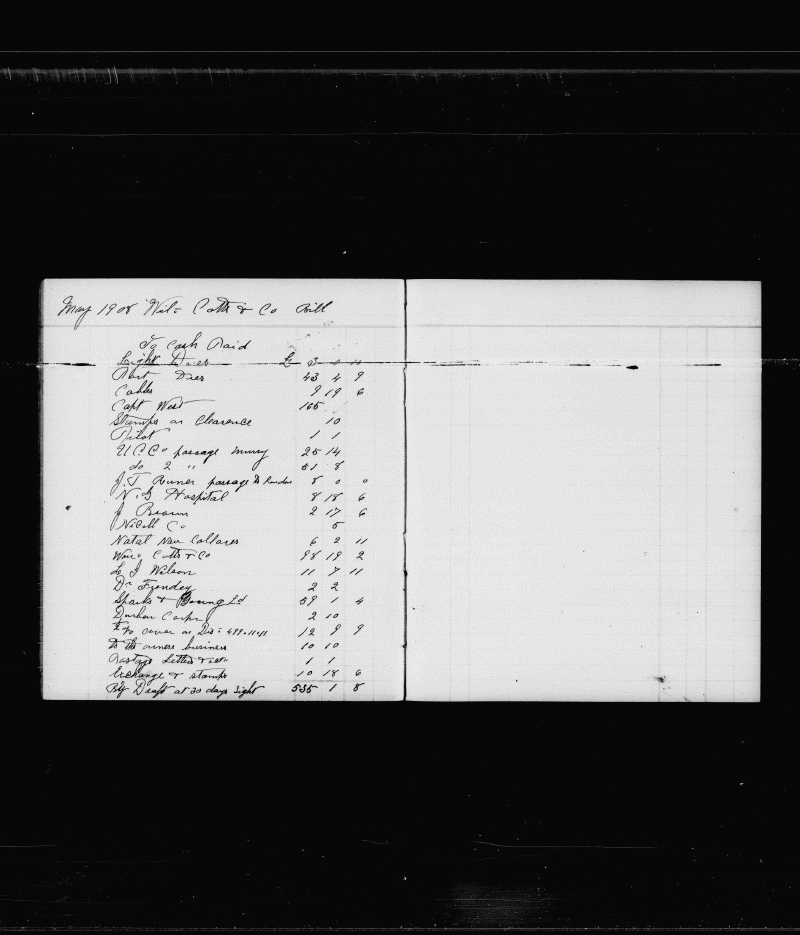 May 1908 Wil= Cotts & Co Bill
To Cash Paid
Light Dues £ 3 0 11
Port Dues 43 4 9
Cables 9 19 6
Capt West 165
Stamps on Clearence 10
Pilot 1 1
U C Co passage Murry 25 14
do 2 " 51 8
J. T. passage to 8 0 0
N. G Hospital 8 18 6
J Brown 2 17 6
Nicoll Co 5
Natal Nav Collares 6 2 11
Cotts & Co 98 19 2
L J Wilson 11 7 11
Dr 2 2
Sparks & Young Ld 59 1 4
Durban Corpr 2 10
% to cover on Dis= 499-11-11 12 9 9
to the owners business 10 10
Postage Letters 1 1
Exchange & stamps 10 18 6
By Draft at 30 days Sight 535 1 8